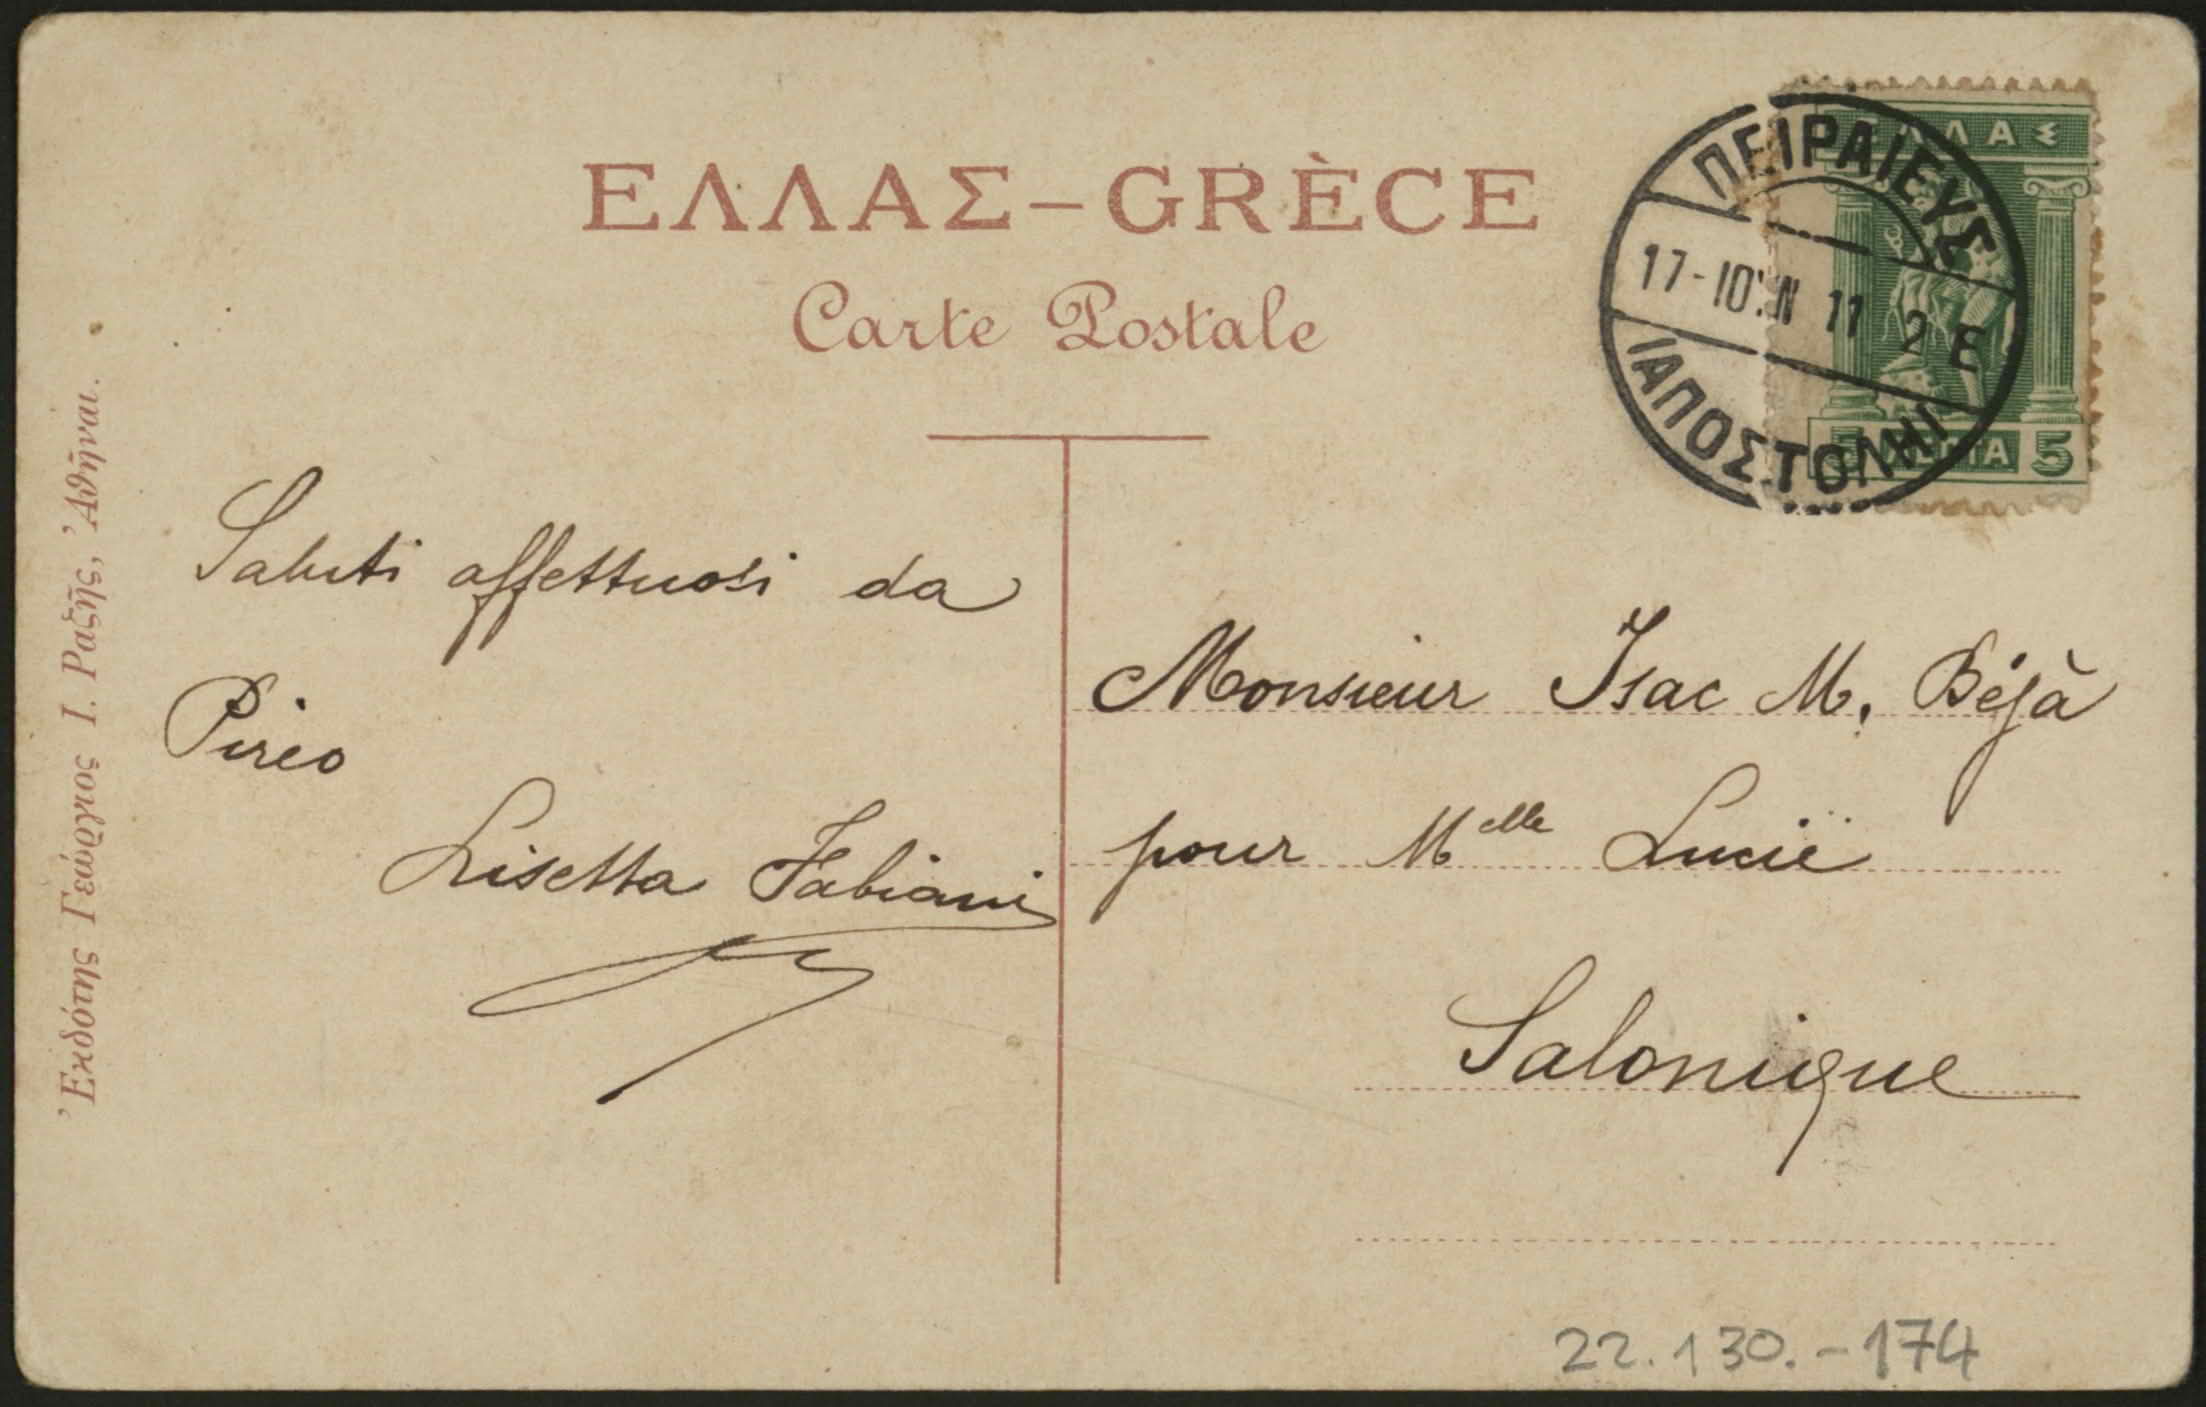 ΕΛΛΑΣ – GRÈCE
Carte Postale
ΕΛΛΑΣ
5 ΛΕΠΤΑ 5
ΠΕΙΡΑΙΕΥΣ
17-ΙΟΥΝ 11 2 Ε
ΑΠΟΣΤΟΛΗ
Ἐκδότης Γεώργιος Ι. Ραζῆς, Ἀθῆναι.
Saluti affettuosi da
Pireo
Lisetta Fabiani
Monsieur Isac M. Béjà
pour Melle Lucie
Salonique
22.130.-174